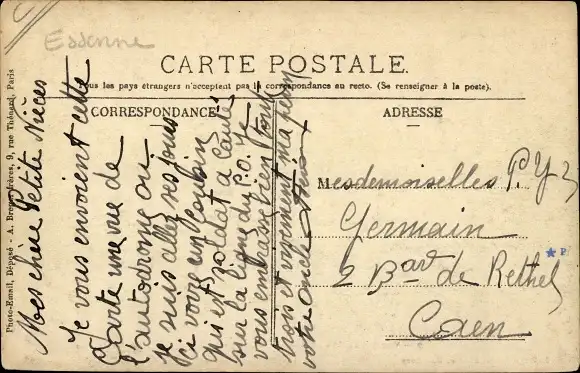 Essonne
CARTE POSTALE.
Tous les pays étrangers n'acceptent pas la correspondance au recto. (Se renseigner à la poste).
CORRESPONDANCE
ADRESSE
Mesdemoiselles P. Y
Germain
2 Bard de Rethel
Caen
P
Mes chère Petite Nièces
Je vous envoient cette
Carte une vue de
l'autodrome ou
je suis allez ses jours
ci voire un Cousin
qui est soldat a
sur la ligne du P.O. Je
vous embrasse bien tous
trois et vivement ma perm
votre oncle
Photo-Email, Déposé - A. Breger frères, 9, rue Thénard, Paris